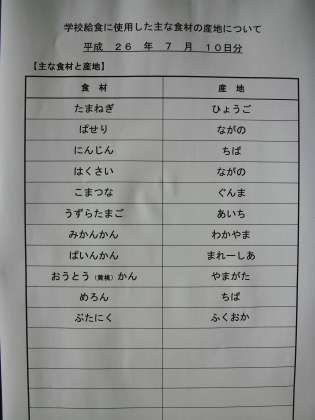 学校給食に使用した主な食材の産地について
平成 26 年 7 月 10日分
【主な食材と産地】
食 材 産 地
たまねぎ ひょうご
ぱせり ながの
にんじん ちば
はくさい ながの
こまつな ぐんま
うずらたまご あいち
みかんかん わかやま
ぱいんかん まれーしあ
おうとう（黄桃）かん やまがた
めろん ちば
ぶたにく ふくおか